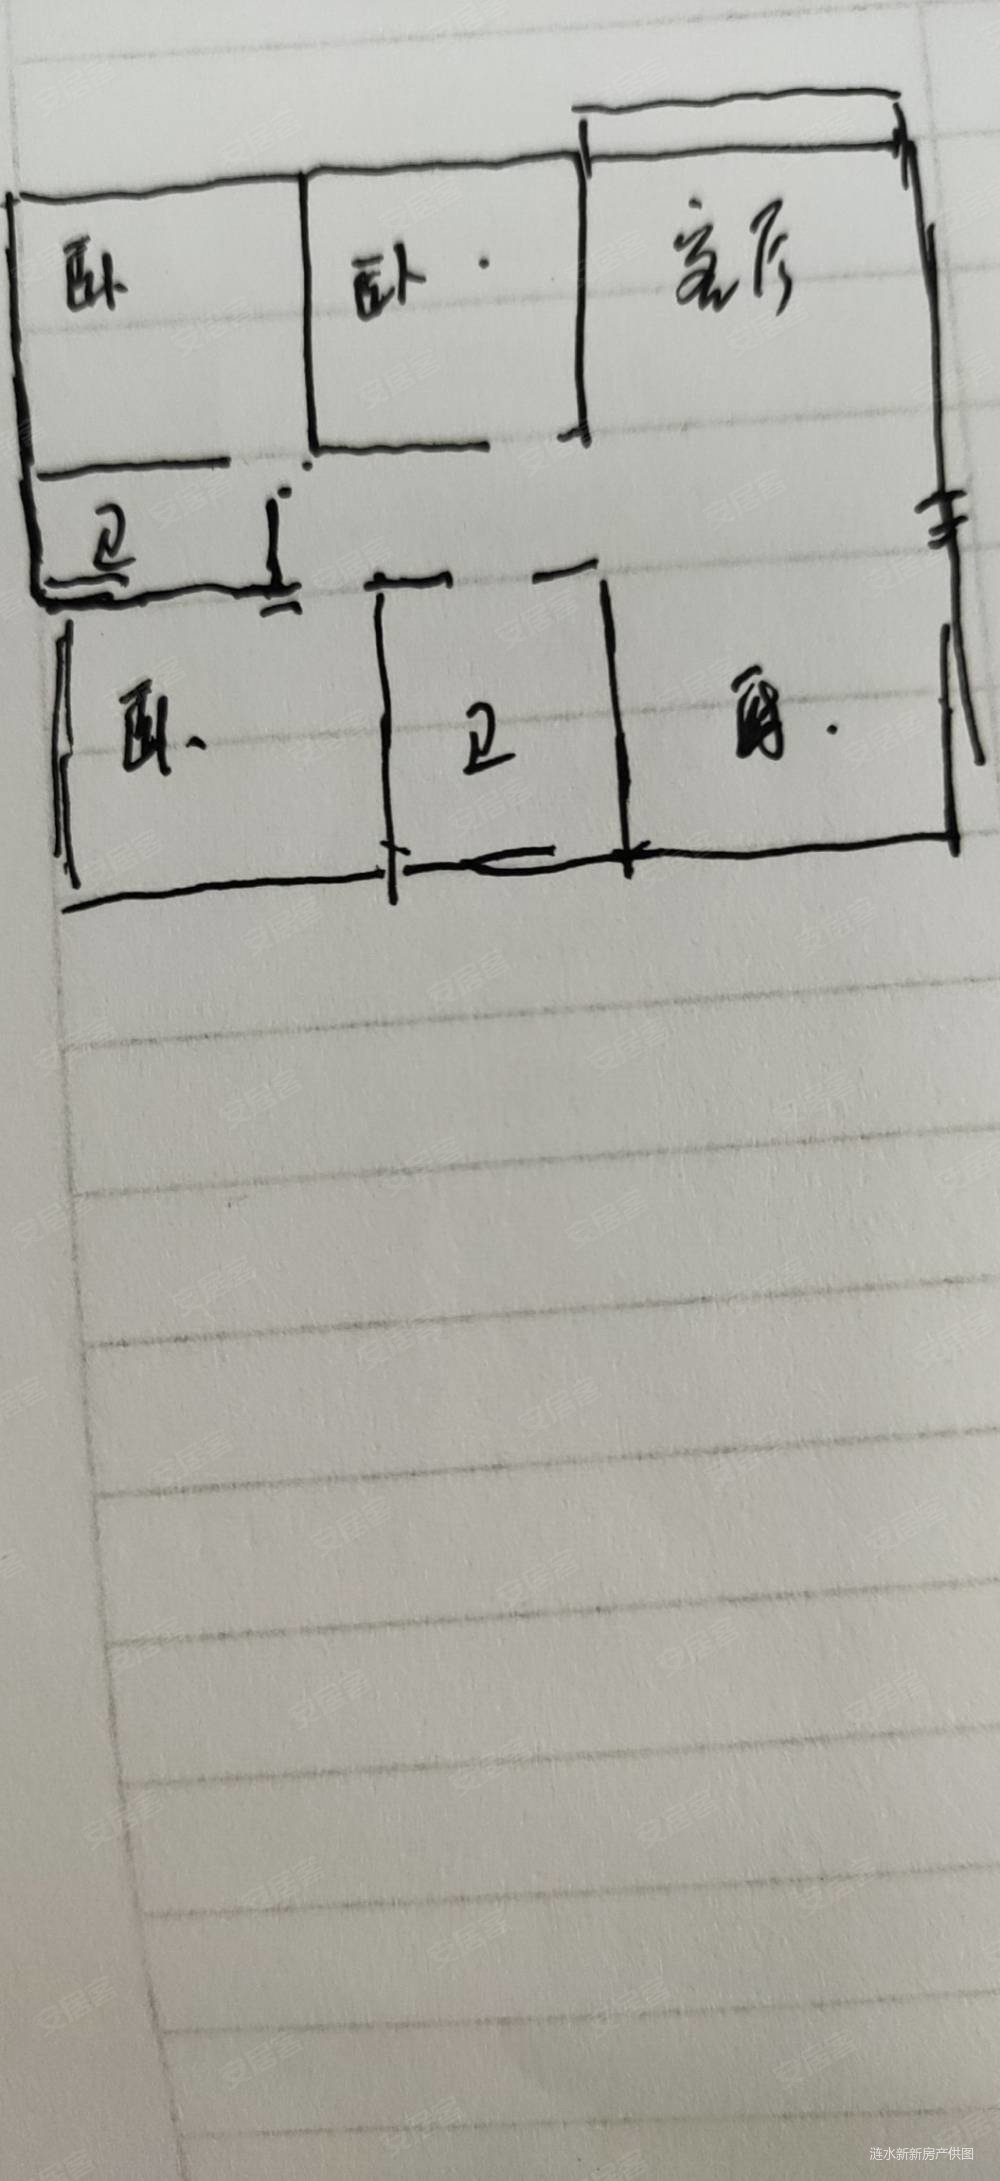 卧
卧
客厅
卫
卧
卫
厨
涟水新新房产供图